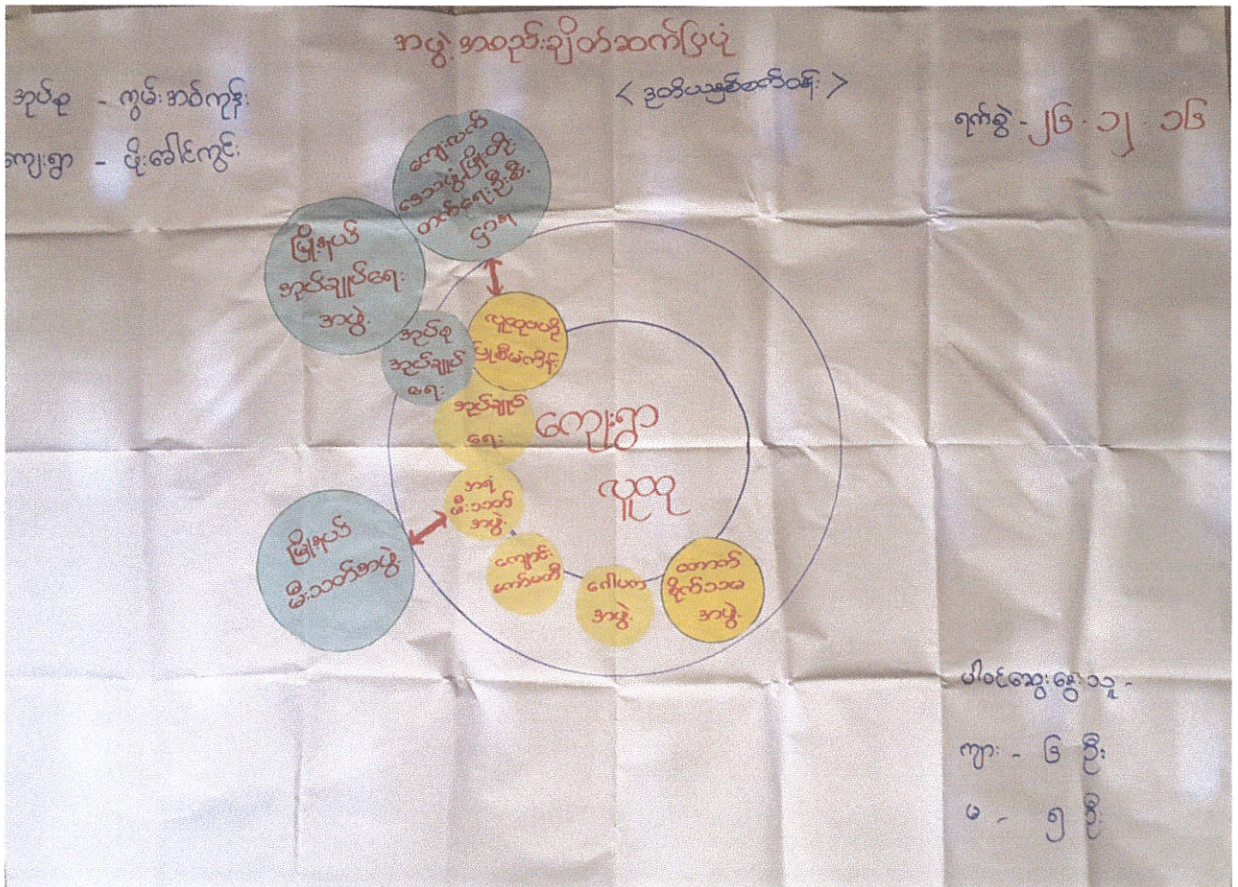 အဖွဲ့အစည်းချိတ်ဆက်ပြပုံ
< ဒုတိယနှစ်စက်ဝန်း >
အုပ်စု - ကွမ်းအစ်ကုန်း
ကျေးရွာ - ဖိုးခေါင်ကွင်း
ရက်စွဲ - ၂၆ . ၁၂ . ၁၆
ကျေးလက်
ဒေသဖွံ့ဖြိုးတိုး
တက်ရေးဦးစီး
ဌာန
မြို့နယ်
အုပ်ချုပ်ရေး
အဖွဲ့
အုပ်စု
အုပ်ချုပ်
ရေး
လူထုဗဟို
ပြုစီမံကိန်း
အုပ်ချုပ်
ရေး
ကျေးရွာ
လူထု
အရံ
မီးသတ်
အဖွဲ့
မြို့နယ်
မီးသတ်အဖွဲ့
ကျောင်း
ကော်မတီ
ဂေါပက
အဖွဲ့
ထောက်
စိုက်သမ
အဖွဲ့
ပါဝင်ဆွေးနွေးသူ -
ကျား - ၆ ဦး
မ - ၅ ဦး